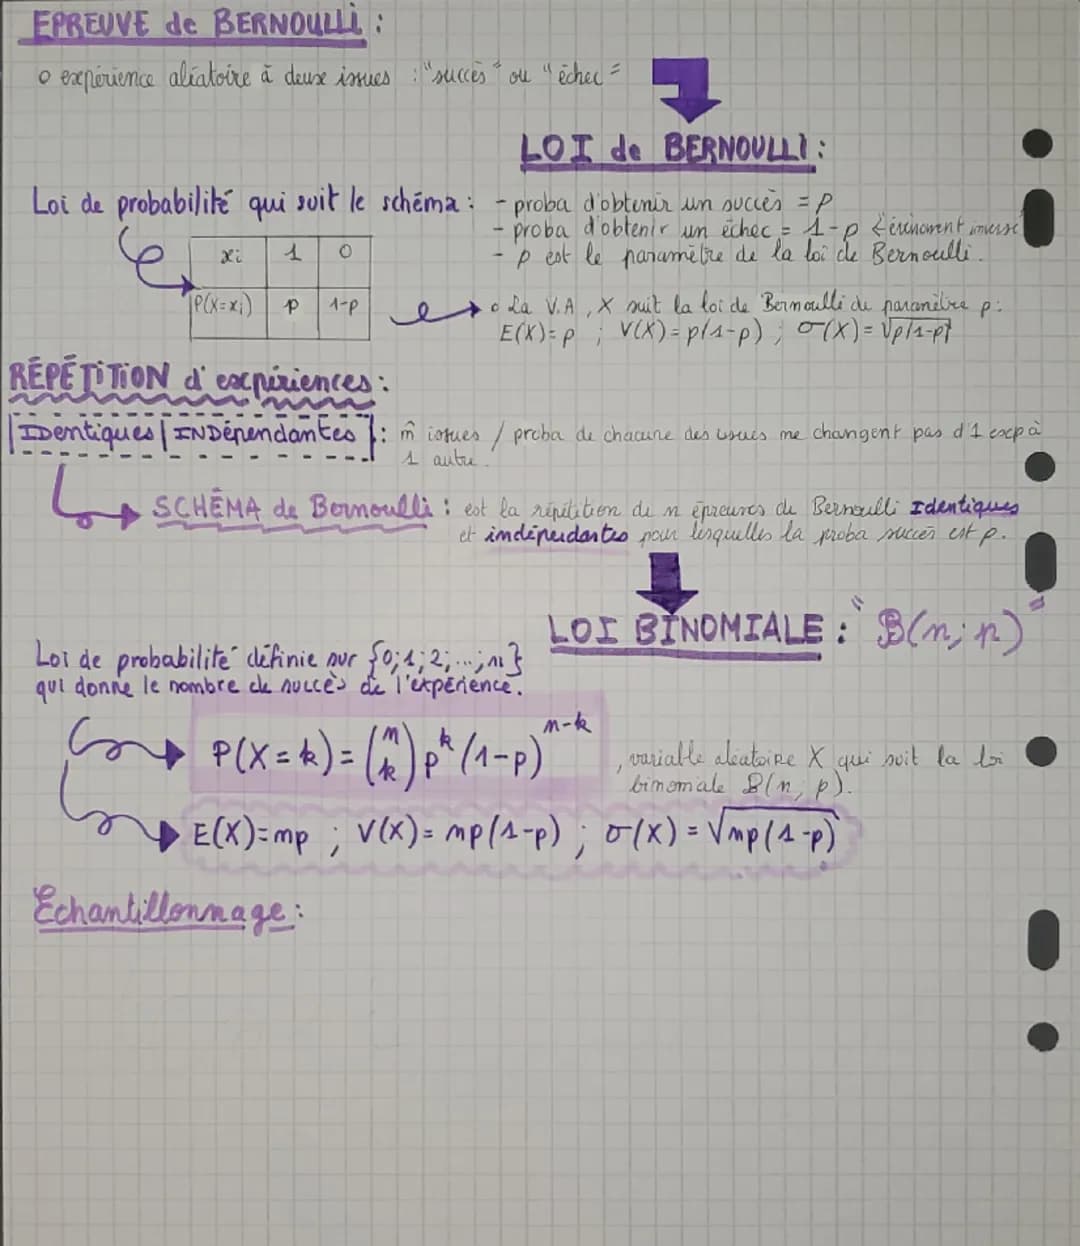 EPREUVE de BERNOULLI :
o expérience aléatoire à deux issues : "succès" ou "échec"
LOI de BERNOULLI :
Loi de probabilité qui suit le schéma : - proba d'obtenir un succès = p
- proba d'obtenir un échec = 1-p l'événement inverse
- p est le paramètre de la loi de Bernoulli.
xi 1 0
P(X=xi) p 1-p
o La V.A, X suit la loi de Bernoulli de paramètre p :
E(X)=p ; V(X)=p(1-p) ; σ(X)=√p(1-p)
RÉPÉTITION d'expériences :
IDentiques | INDépendantes : m̂ issues / proba de chacune des issues ne changent pas d'1 exp à
1 autre.
SCHÉMA de Bernoulli : est la répétition de n épreuves de Bernoulli Identiques
et indépendantes pour lesquelles la proba succès est p.
LOI BINOMIALE : "B(n;p)"
Loi de probabilité définie sur {0;1;2;...;n}
qui donne le nombre de succès de l'expérience.
P(X=k) = (n k) p^k (1-p)^n-k
, variable aléatoire X qui suit la loi
binomiale B(n, p).
E(X)=np ; V(X)=np(1-p) ; σ(X)=√np(1-p)
Echantillonnage :